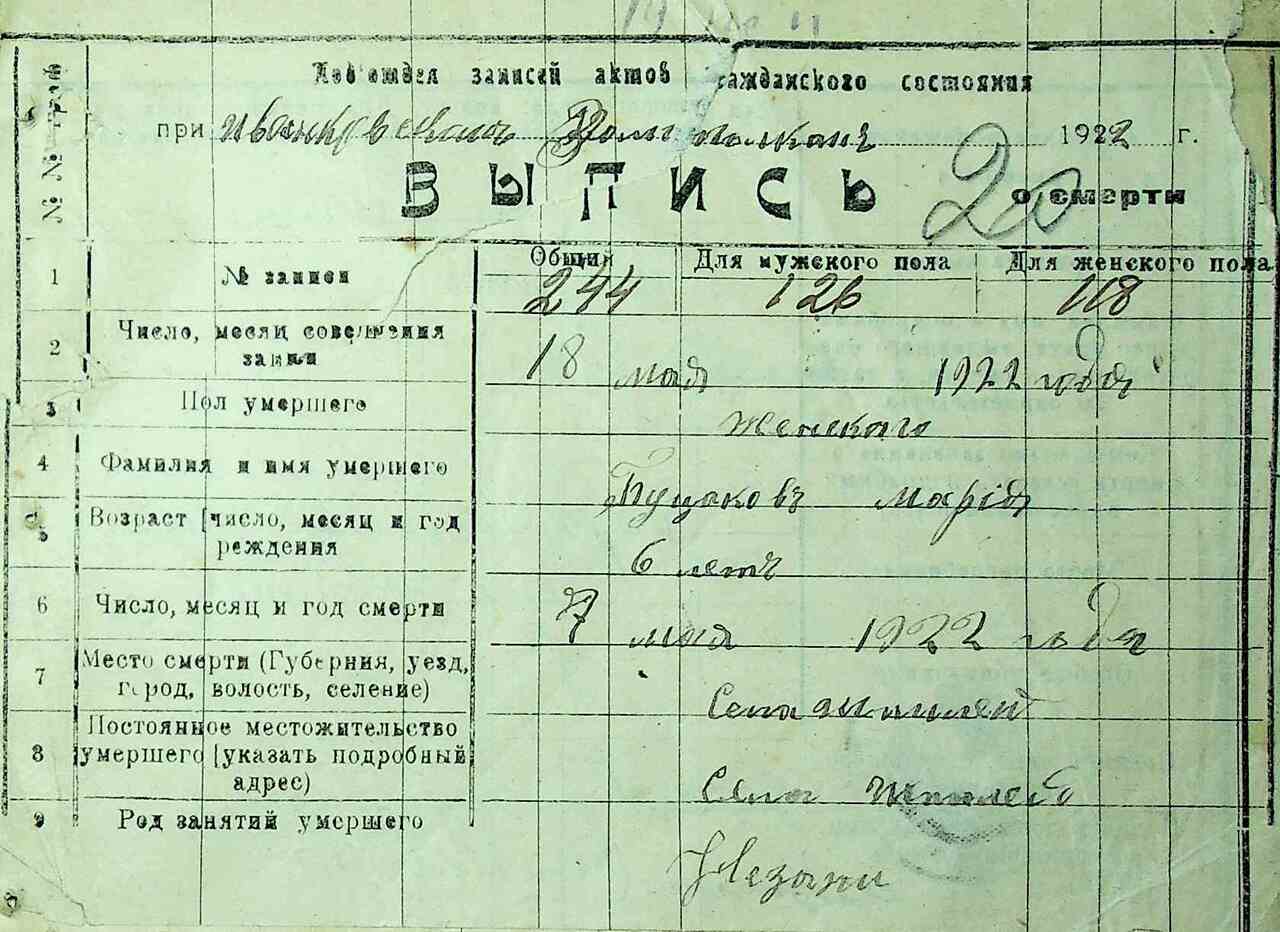 № № граф
Под'отдел записей актов гражданского состояния
при Волисполкоме 1922 г.
ВЫПИСЬ о смерти
20
1 № записи Общий Для мужского пола Для женского пола
244 126 118
2 Число, месяц совершения записи
18 мая 1922 года
3 Пол умершего
Женскаго
4 Фамилия и имя умершего
Марія
5 Возраст [число, месяц и год рождения
6 летъ
6 Число, месяц и год смерти
7 мая 1922 года
7 Место смерти (Губерния, уезд, город, волость, селение)
Села
8 Постоянное местожительство умершего [указать подробный адрес)
Села
9 Род занятий умершего